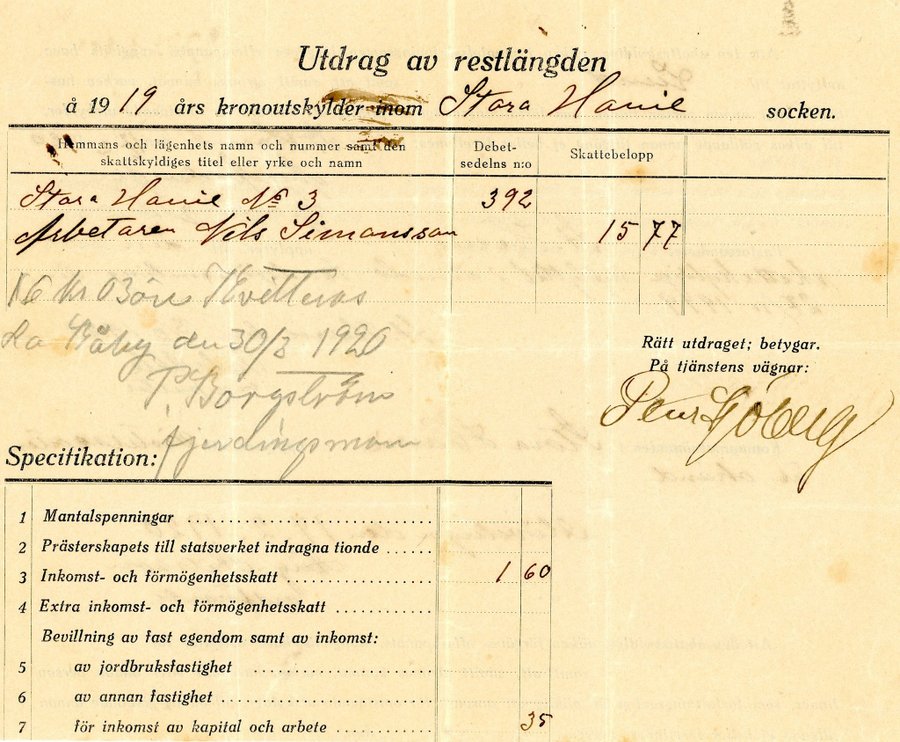 Utdrag av restlängden
å 1919 års kronoutskylder inom Stora Harrie socken.
Hemmans och lägenhets namn och nummer samt den
skattskyldiges titel eller yrke och namn
Debet-
sedelns n:o
Skattebelopp
Stora Harrie No 3 392
Arbetaren Nils Simonsson 15 77
16 kr 03 öre Kvitteras
La Råby den 30/3 1920
P. Borgström
fjerdingsman
Rätt utdraget; betygar.
På tjänstens vägnar:
Sjöberg
Specifikation:
1 Mantalspenningar
2 Prästerskapets till statsverket indragna tionde
3 Inkomst- och förmögenhetsskatt 1 60
4 Extra inkomst- och förmögenhetsskatt
Bevillning av fast egendom samt av inkomst:
5 av jordbruksfastighet
6 av annan fastighet
7 för inkomst av kapital och arbete 35